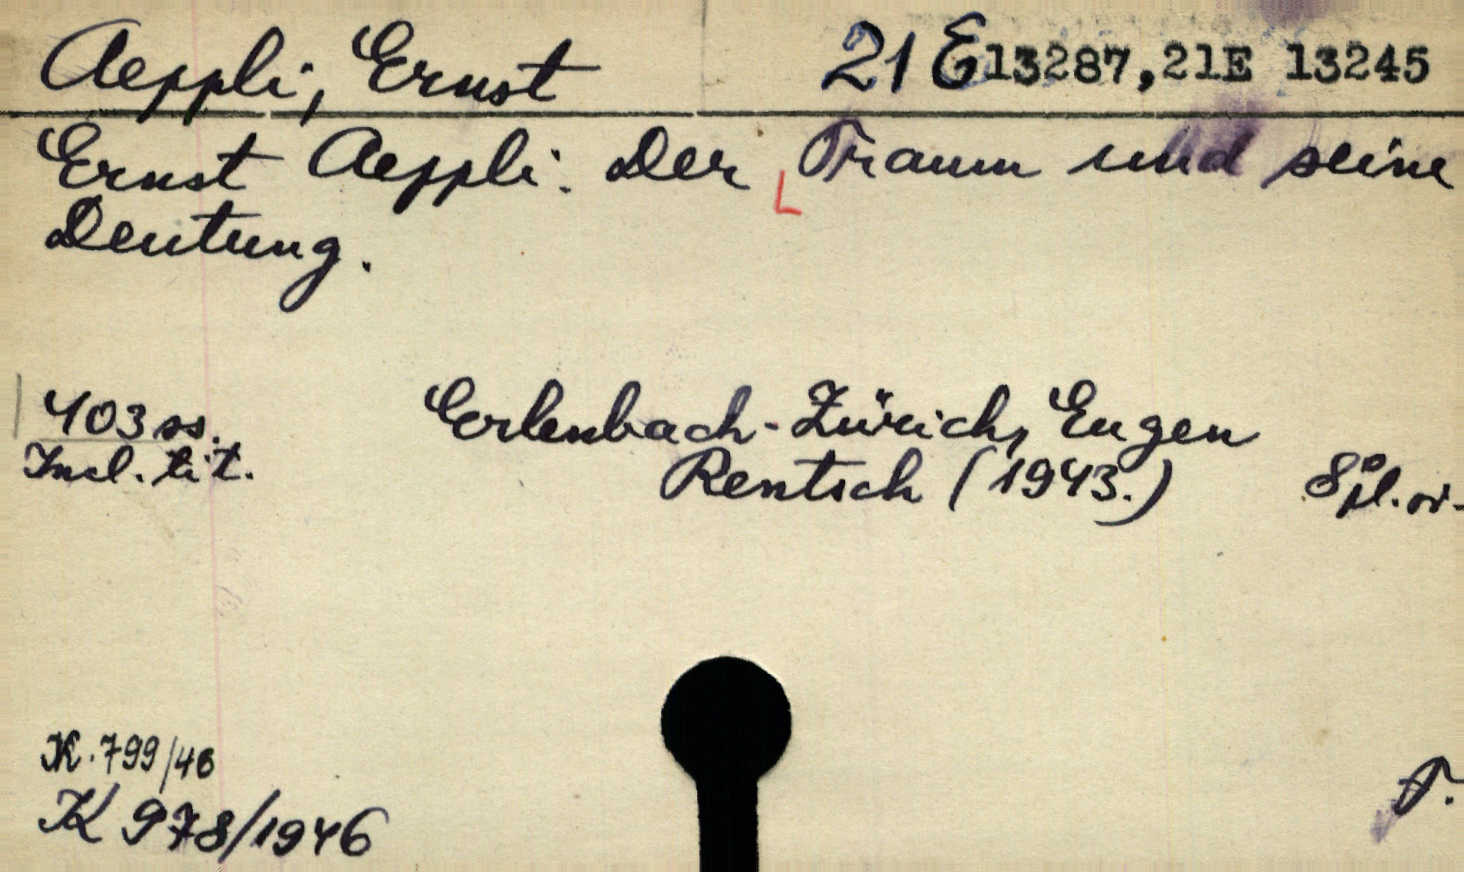 Aeppli, Ernst 21 E13287,21E 13245
Ernst Aeppli: Der Traum und seine
Deutung.
403 ss. Erlenbach-Zürich, Eugen
Incl. tit. Rentsch (1943.) 8° pl.
K.799/46
K 978/1946
T.